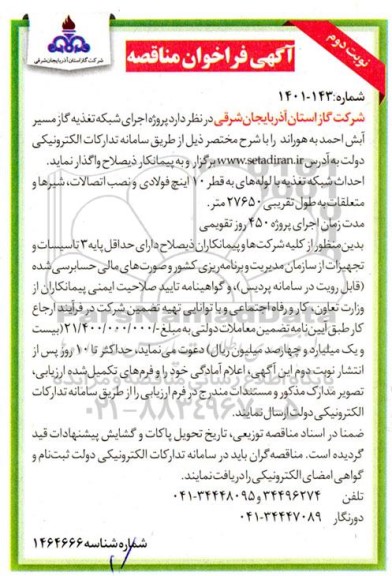 شرکت گاز استان آذربایجان شرقی
نوبت دوم
آگهی فراخوان مناقصه
شماره: ۱۴۳-۱۴۰۱
شرکت گاز استان آذربایجان شرقی در نظر دارد پروژه اجرای شبکه تغذیه گاز مسیر
آبش احمد به هوراند را با شرح مختصر ذیل از طریق سامانه تدارکات الکترونیکی
دولت به آدرس www.setadiran.ir برگزار و به پیمانکار ذیصلاح واگذار نماید.
احداث شبکه تغذیه با لوله‌های به قطر ۱۰ اینچ فولادی و نصب اتصالات، شیرها و
متعلقات به طول تقریبی ۲۷۶۵۰ متر.
مدت زمان اجرای پروژه ۴۵۰ روز تقویمی
بدین منظور از کلیه شرکت‌ها و پیمانکاران ذیصلاح دارای حداقل پایه ۳ تاسیسات و
تجهیزات از سازمان مدیریت و برنامه ریزی کشور و صورت‌های مالی حسابرسی شده
(قابل رویت در سامانه پردیس)، و گواهینامه تایید صلاحیت ایمنی پیمانکاران از
وزارت تعاون، کار و رفاه اجتماعی و با توانایی تهیه تضمین شرکت در فرآیند ارجاع
کار طبق آیین نامه تضمین معاملات دولتی به مبلغ ۲۱/۴۰۰/۰۰۰/۰۰۰/- (بیست
و یک میلیارد و چهارصد میلیون ریال) دعوت می‌نماید، حداکثر تا ۱۰ روز پس از
انتشار نوبت دوم این آگهی، اعلام آمادگی خود را و فرم‌های تکمیل شده ارزیابی،
تصویر مدارک مذکور و مستندات مندرج در فرم ارزیابی را از طریق سامانه تدارکات
الکترونیکی دولت ارسال نمایند.
ضمنا در اسناد مناقصه توزیعی، تاریخ تحویل پاکات و گشایش پیشنهادات قید
گردیده است. مناقصه گران باید در سامانه تدارکات الکترونیکی دولت ثبت‌نام و
گواهی امضای الکترونیکی را دریافت نمایند.
تلفن ۳۴۴۹۶۲۷۴ و ۳۴۴۴۸۰۹۵-۰۴۱
دورنگار ۳۴۴۴۷۰۸۹-۰۴۱
شماره شناسه ۱۴۶۴۶۶۶